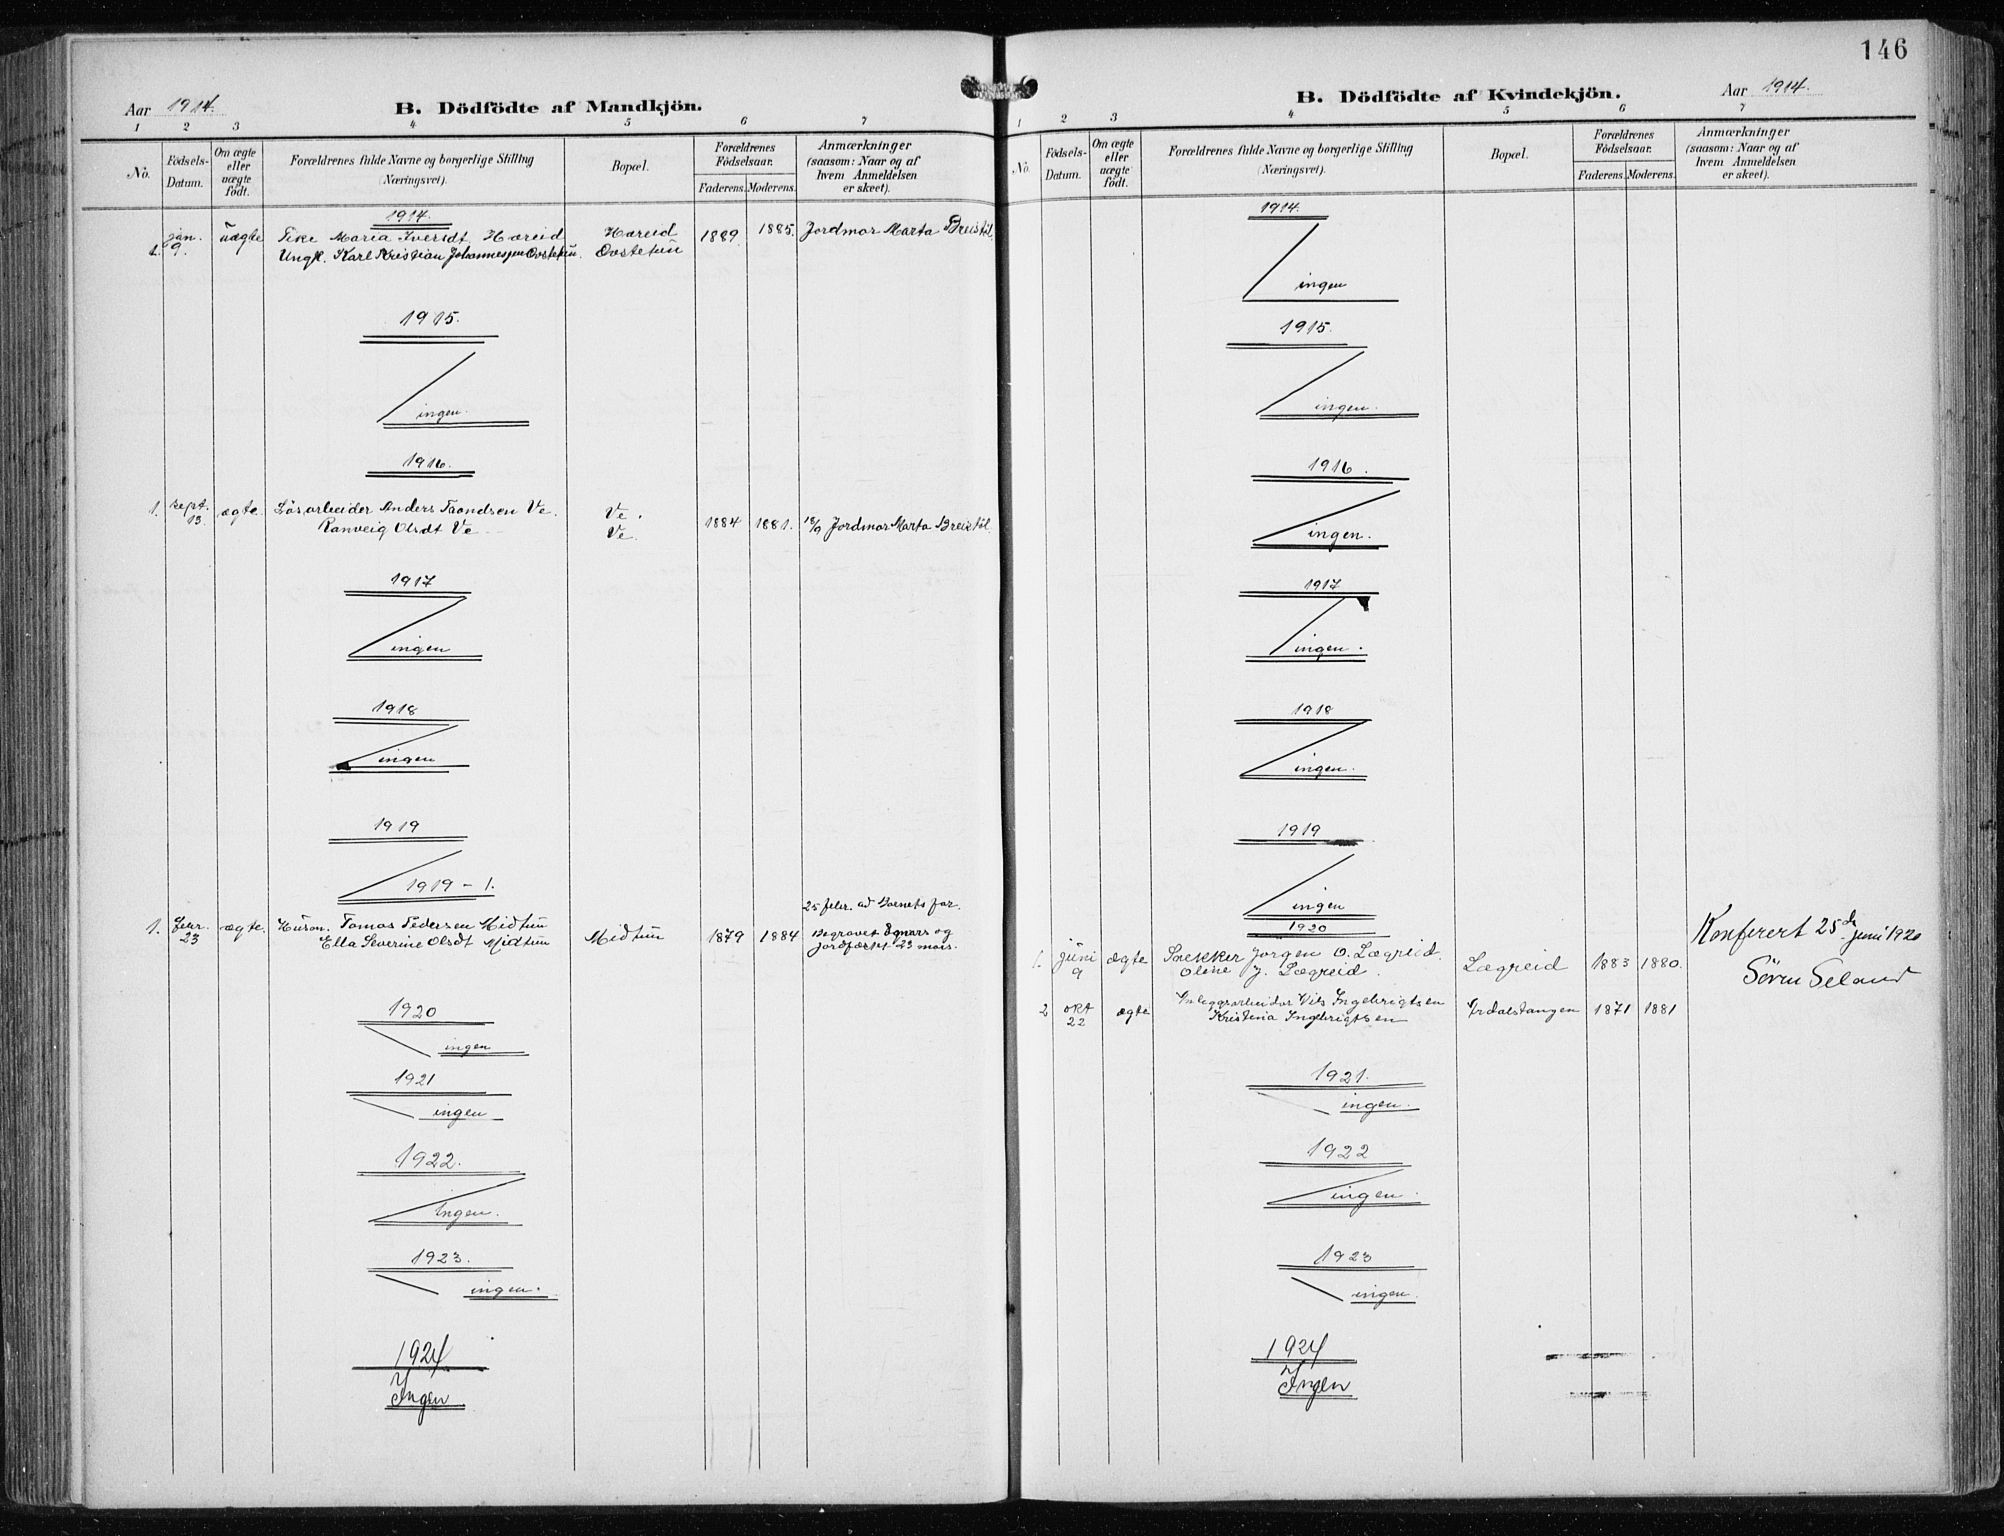 146
Aar 1914.
B. Dödfödte af Mandkjön.
1 2 3 4 5 6 7
No.
Födsels-
Datum.
Om ægte
eller
uægte
födt.
Forældrenes fulde Navne og borgerlige Stilling
(Næringsvei).
Bopæl.
Forældrenes
Födselsaar.
Faderens. Moderens.
Anmærkninger
(saasom: Naar og af
hvem Anmeldelsen
er skeet).
1914.
1. jan. 9. uægte Pike Maria Iversdt. Hæreid Hæreid 1889 1885. Jordmor Marta Breistöl.
Ungk. Karl Kristian Johannessen Ovstetun. Ovstetun
1915.
ingen.
1916.
1. sept. 13. ægte Lösarbeider Anders Trondsen Ve. Ve. 1884 1881. 18/9 Jordmor Marta Breistöl.
Ranveig Olsdt Ve Ve.
1917
ingen
1918
ingen
1919
1919 - 1.
25 febr. ad Barnets far.
1. febr. 23 ægte. Husm. Tomas Pedersen Midtun Midtun 1879 1884 Begravet og
Ella Severine Olsdt Midtun jordfæstet 23 mars.
1920
ingen
1921
ingen
1922.
Ingen.
1923.
ingen.
1924
Ingen
B. Dödfödte af Kvindekjön.
Aar 1914.
1 2 3 4 5 6 7
No.
Födsels-
Datum.
Om ægte
eller
uægte
födt.
Forældrenes fulde Navne og borgerlige Stilling
(Næringsvei).
Bopæl.
Forældrenes
Födselsaar.
Faderens. Moderens.
Anmærkninger
(saasom: Naar og af
hvem Anmeldelsen
er skeet).
1914.
ingen
1915.
ingen.
1916.
ingen.
1917
ingen.
1918
ingen.
1919
ingen
1920
Konferert 25de juni 1920
Sören Seland
1. juni 9 ægte Snekker Jörgen O. Lægreid. Lægreid 1883 1880.
Oline J. Lægreid.
2 okt 22 ægte Anleggsarbeider Nils Ingebrigtsen Årdalstangen 1871 1881
Kristina Ingebrigtsen
1921.
ingen.
1922
ingen.
1923
ingen.
1924
Ingen